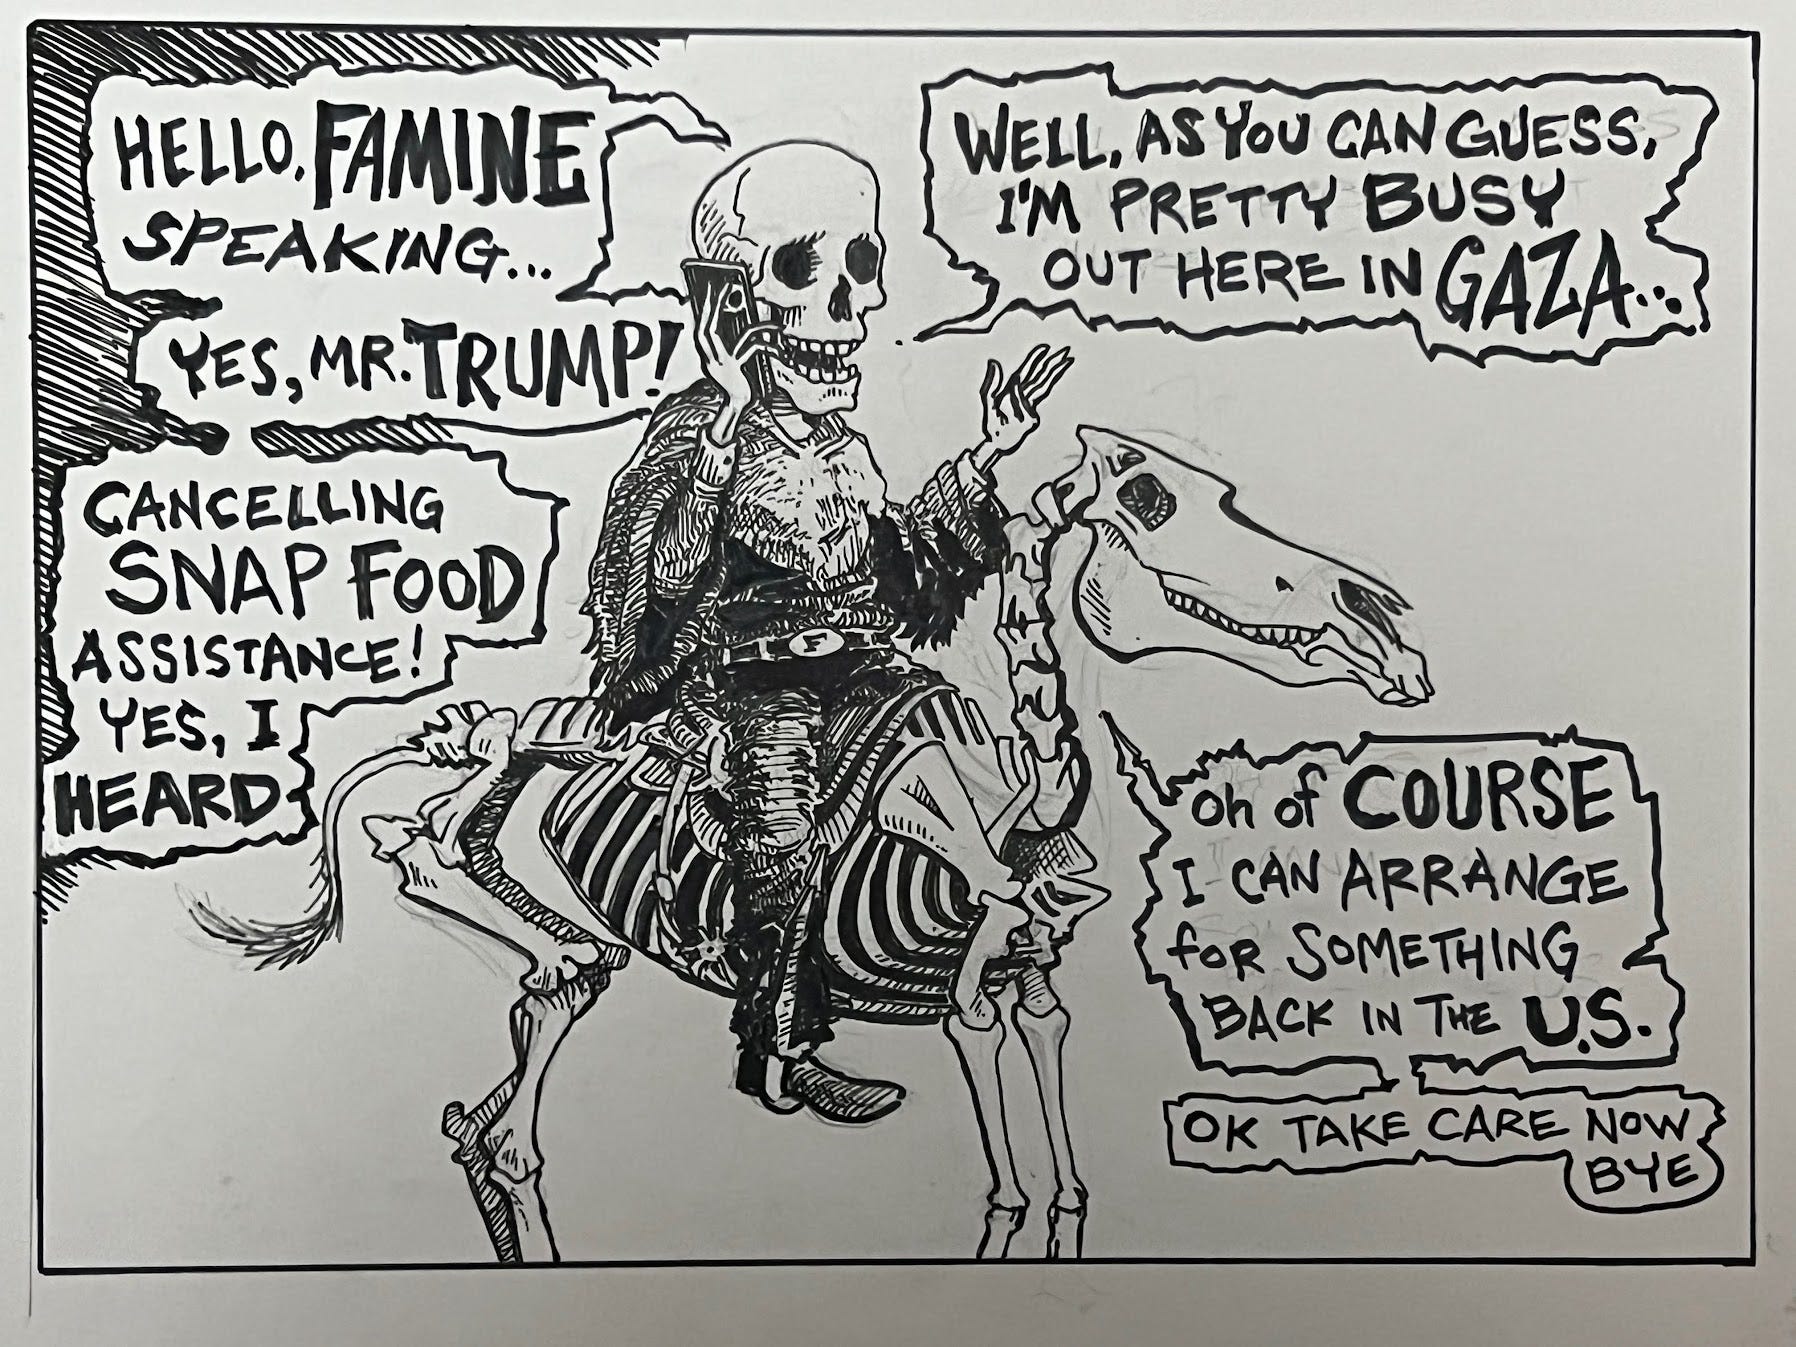 HELLO, FAMINE
SPEAKING...
YES, MR. TRUMP!
CANCELLING
SNAP FOOD
ASSISTANCE!
YES, I
HEARD
WELL, AS YOU CAN GUESS,
I'M PRETTY BUSY
OUT HERE IN GAZA...
F
Oh of COURSE
I CAN ARRANGE
for SOMETHING
BACK IN THE U.S.
OK TAKE CARE NOW
BYE